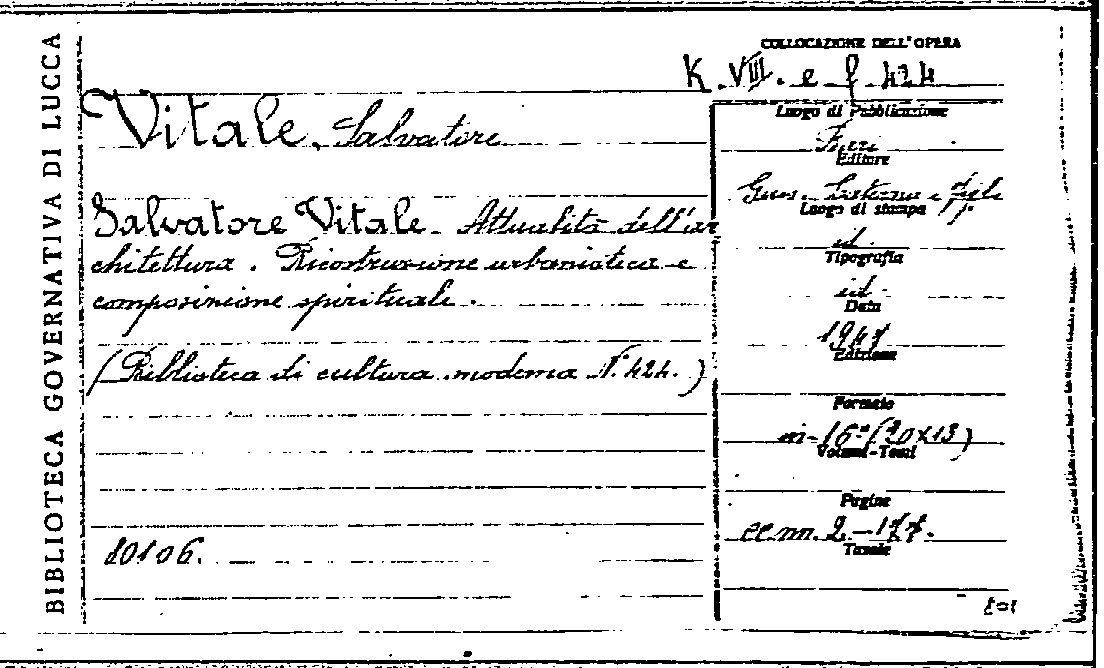 BIBLIOTECA GOVERNATIVA DI LUCCA
COLLOCAZIONE DELL'OPERA
K. VIII. e f 424
Vitale, Salvatore
Salvatore Vitale - Attualità dell'ar
chitettura. Ricostruzione urbanistica e
composizione spirituale.
(Biblioteca di cultura moderna N. 424.)
10106.
Luogo di Pubblicazione
Editore
Luogo di stampa
id.
Tipografia
id.
Data
1947
Edizione
Formato
in-16° (20x13)
Volumi-Tomi
Pagine
cc nn. 2-177.
Tavole